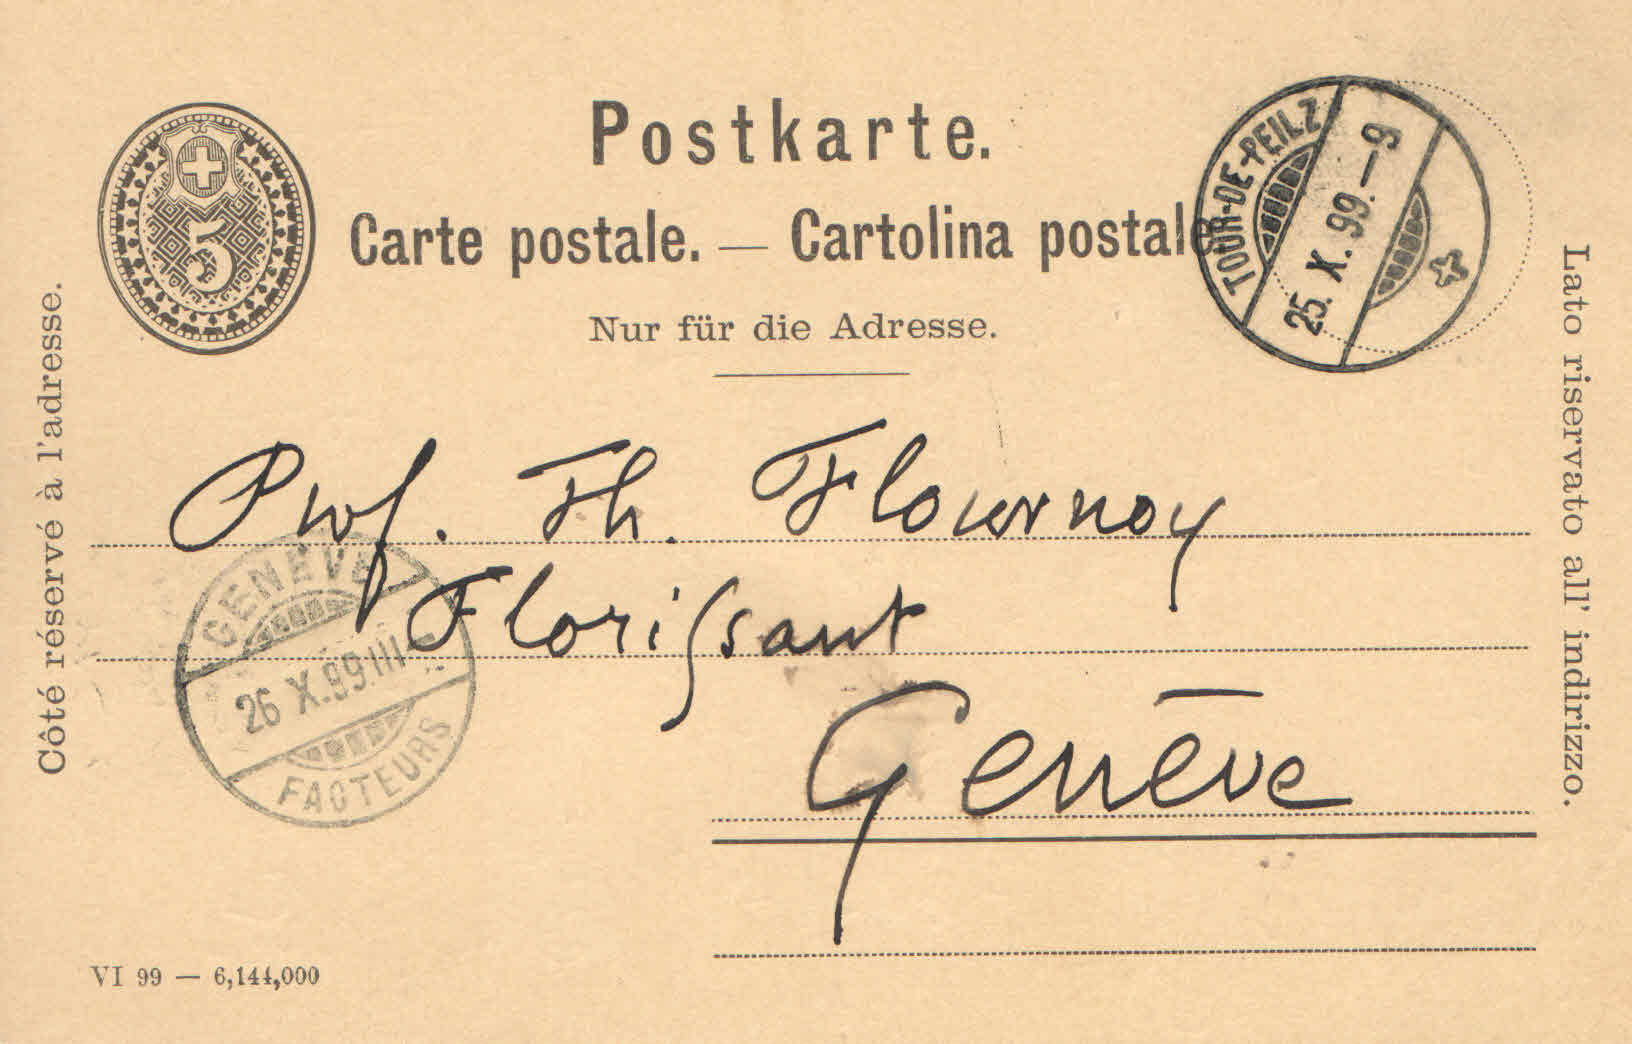 Postkarte.
Carte postale. — Cartolina postale
Nur für die Adresse.
5
TOUR-DE-PEILZ
25. X. 99. – 9
Côté réservé à l'adresse.
Lato riservato all' indirizzo.
Prof. Th. Flournoy
Florissant
Genève
GENÈVE
26 X. 99 III
FACTEURS
VI 99 — 6,144,000